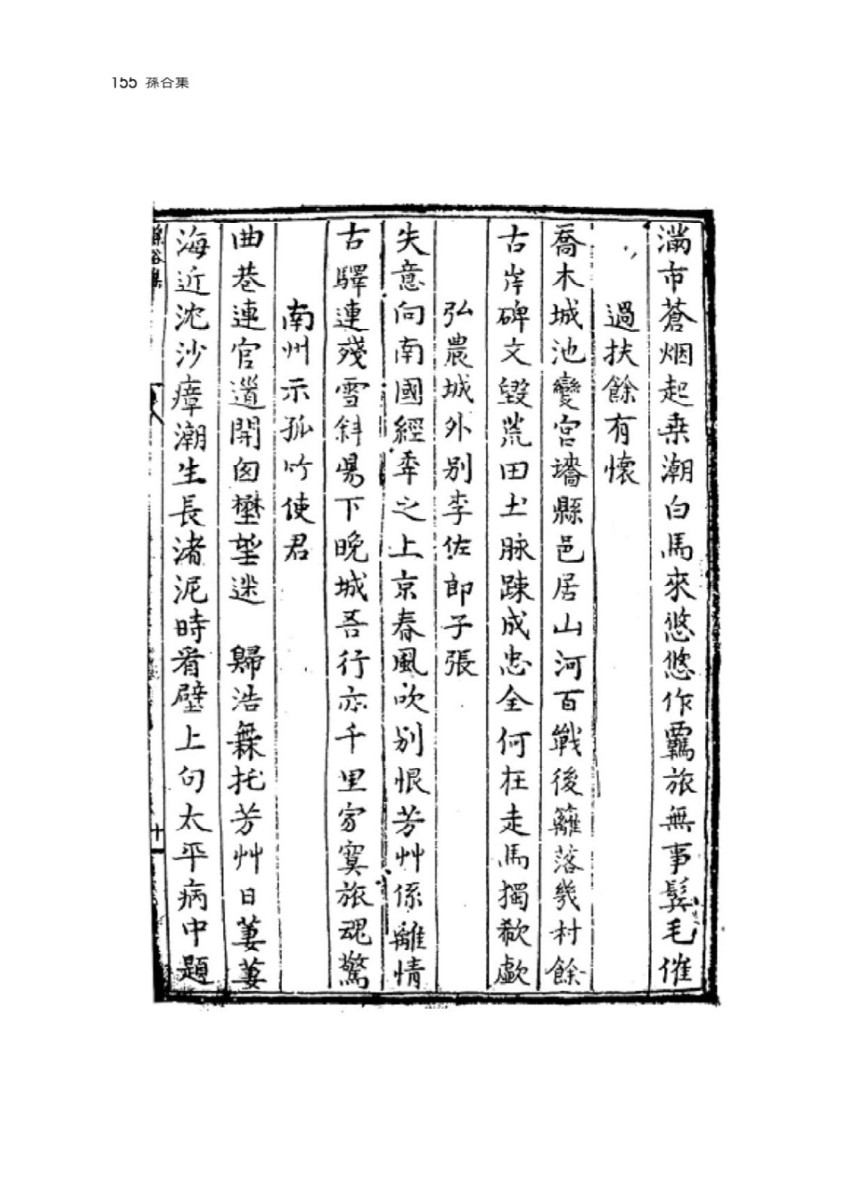 155 孫合集
滿市蒼烟起乗潮白馬來悠悠作覊旅無事髩毛催
過扶餘有懷
喬木城池變宮墻縣邑居山河百戰後籬落幾村餘
古岸碑文毀荒田土脉踈成忠全何在走馬獨欷歔
弘農城外別李佐郎子張
失意向南國經年之上京春風吹別恨芳艸係離情
古驛連殘雪斜陽下晩城吾行亦千里寞旅魂驚
南州示孤竹使君
曲巷連官道開囱壄望迷 歸浩無托芳艸日萋萋
海近沈沙瘴潮生長渚泥時看壁上句太平病中題